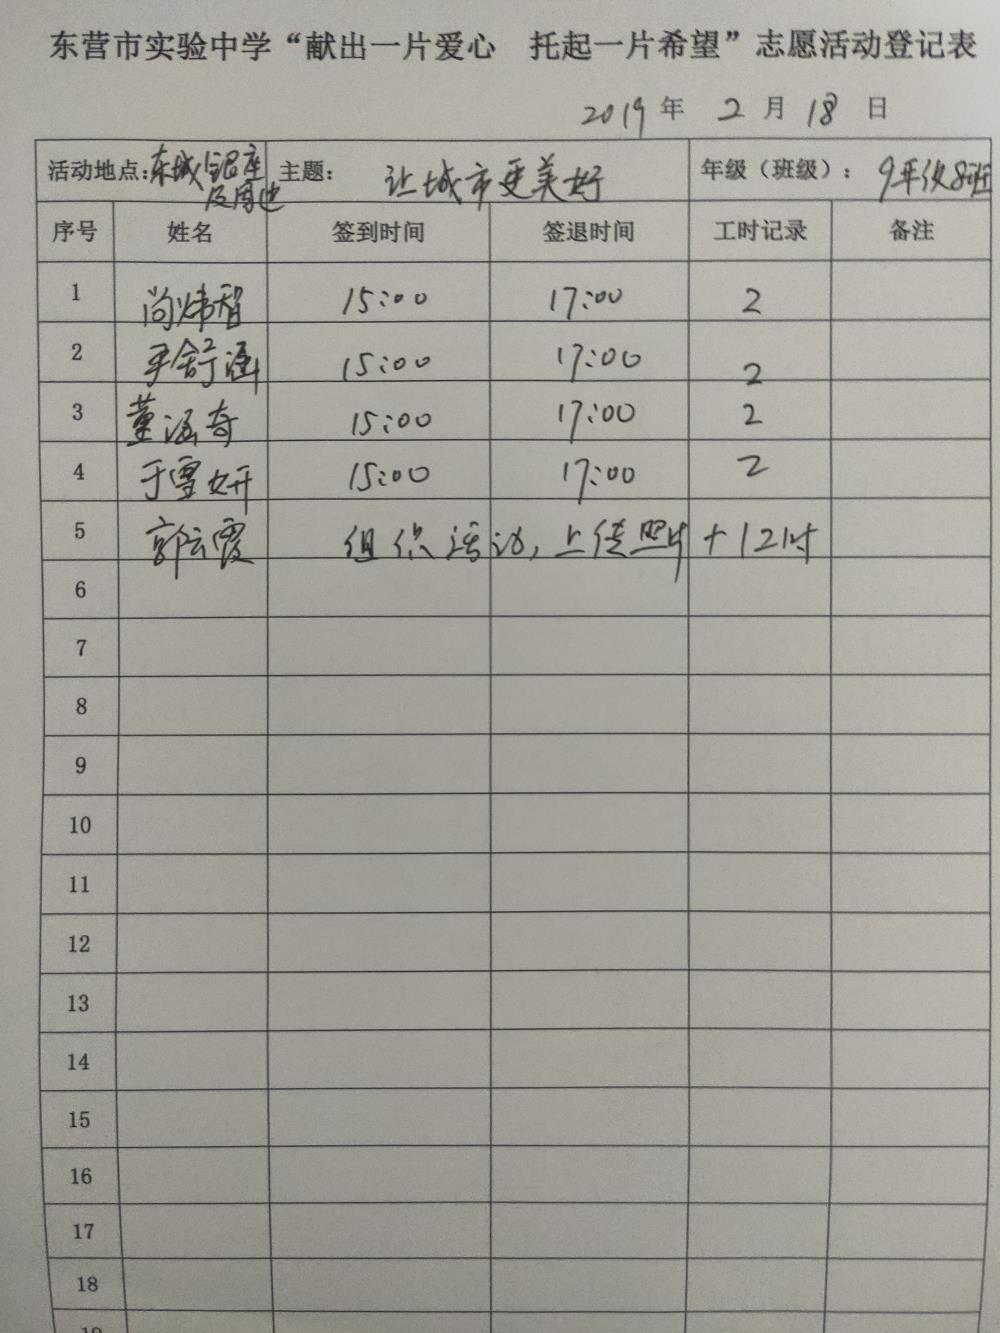 东营市实验中学“献出一片爱心 托起一片希望”志愿活动登记表
2019年 2月18日
活动地点：东城银座及周边 主题： 让城市更美好 年级（班级）： 9年级8班
序号 姓名 签到时间 签退时间 工时记录 备注
1 尚炜智 15:00 17:00 2
2 舒涵 15:00 17:00 2
3 董涵奇 15:00 17:00 2
4 于雪妍 15:00 17:00 2
5 郭云霞 组织活动，上传照片 +12时
6
7
8
9
10
11
12
13
14
15
16
17
18
19